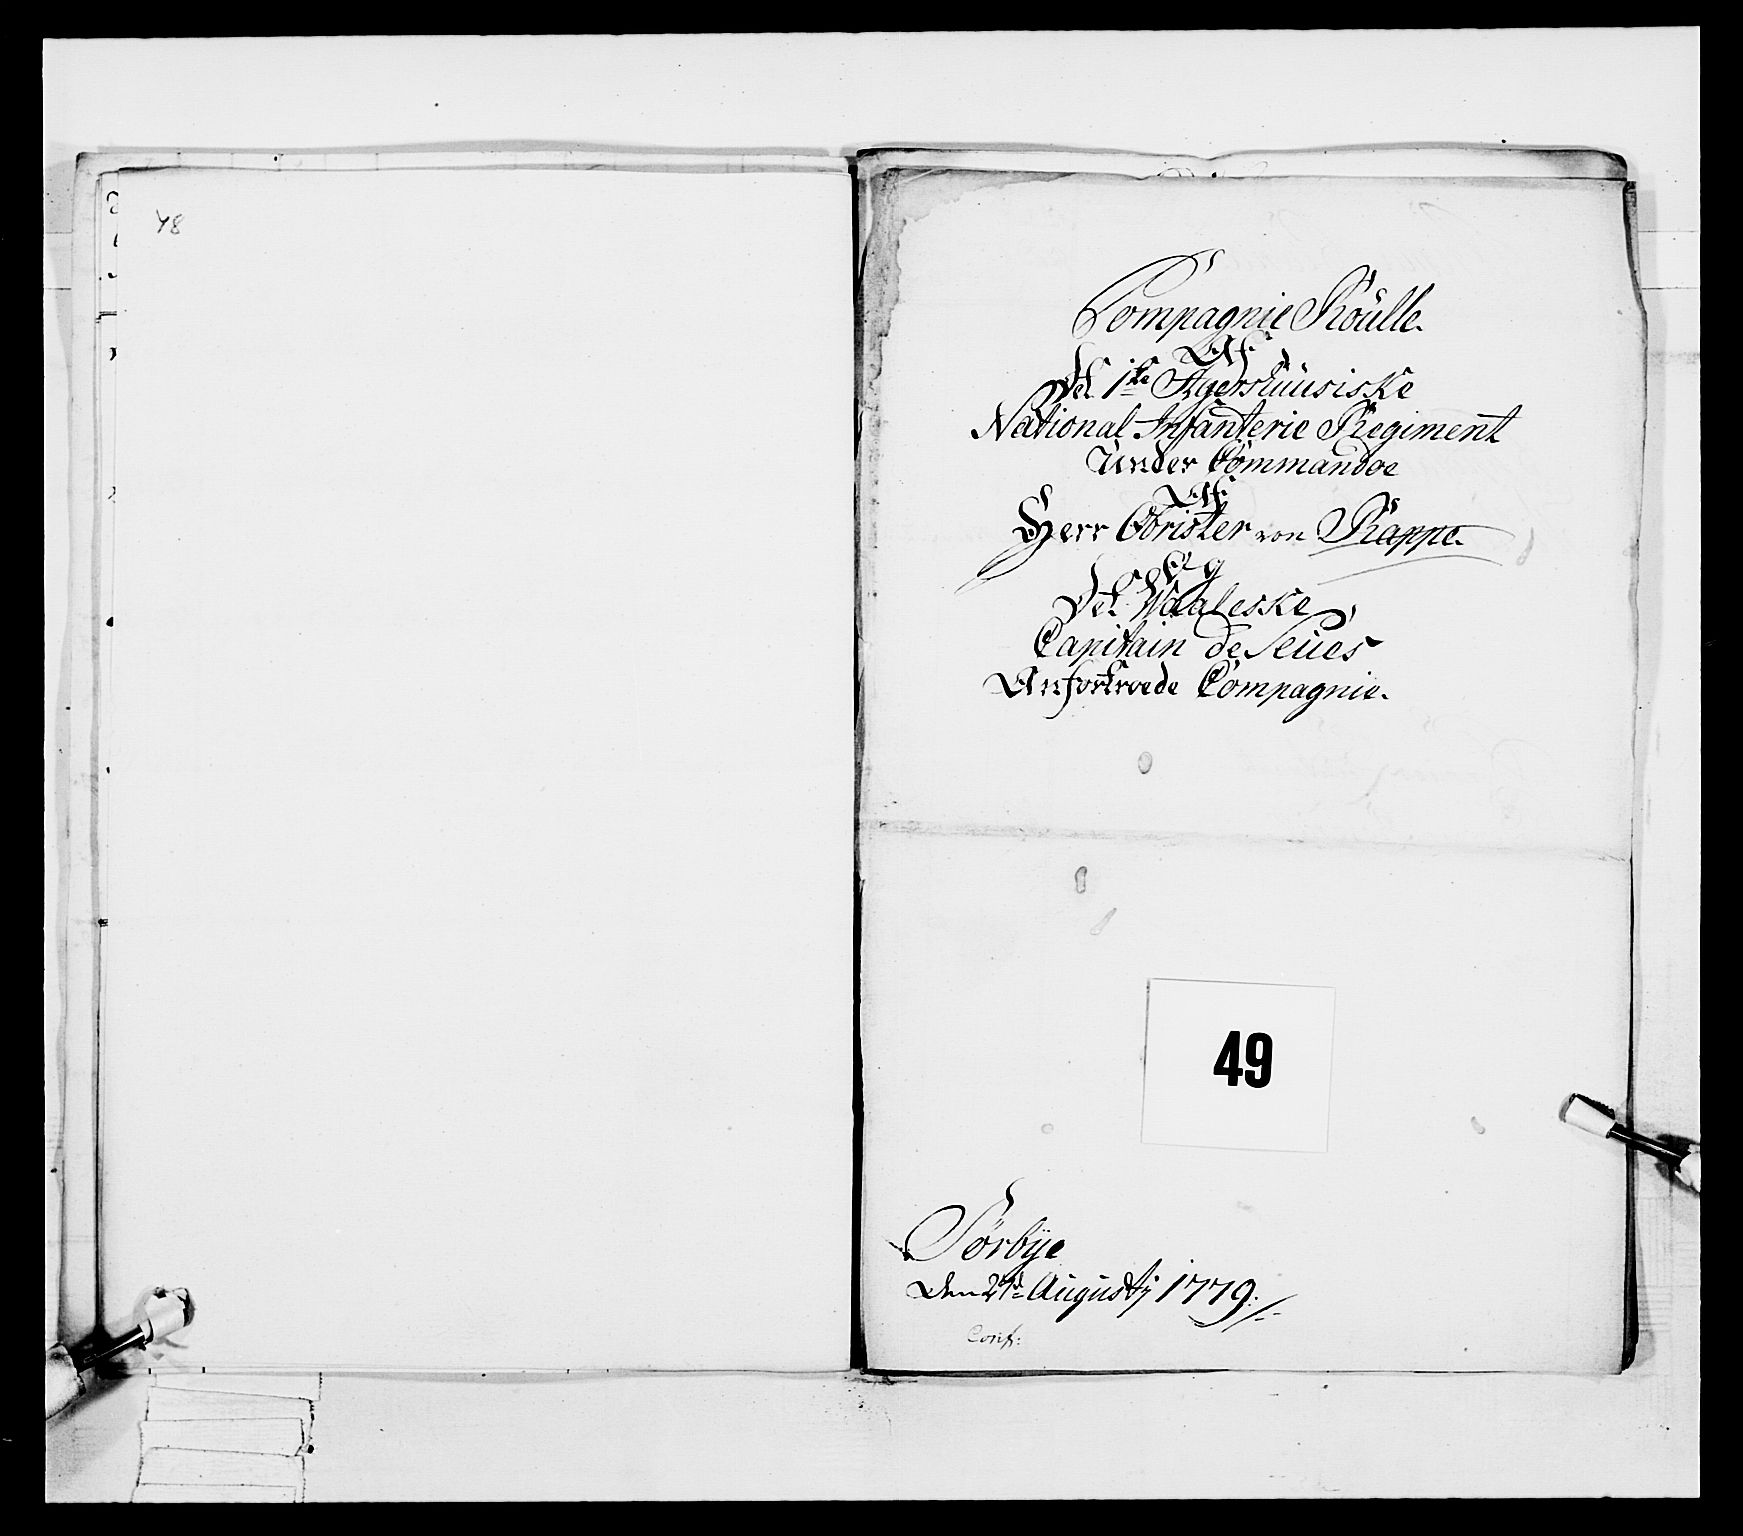 48
Compagnie Roülle.
Af
Det 1ste Agershuusiske
National Infanterie Regiment
Under Commandoe
Af
Herr Obrister von Rappe.
Og
Det Waaleske
Capitain de Seües
Anfortroede Compagnie.
49
Sørbÿe
Den Augustj 1779.
Conf: